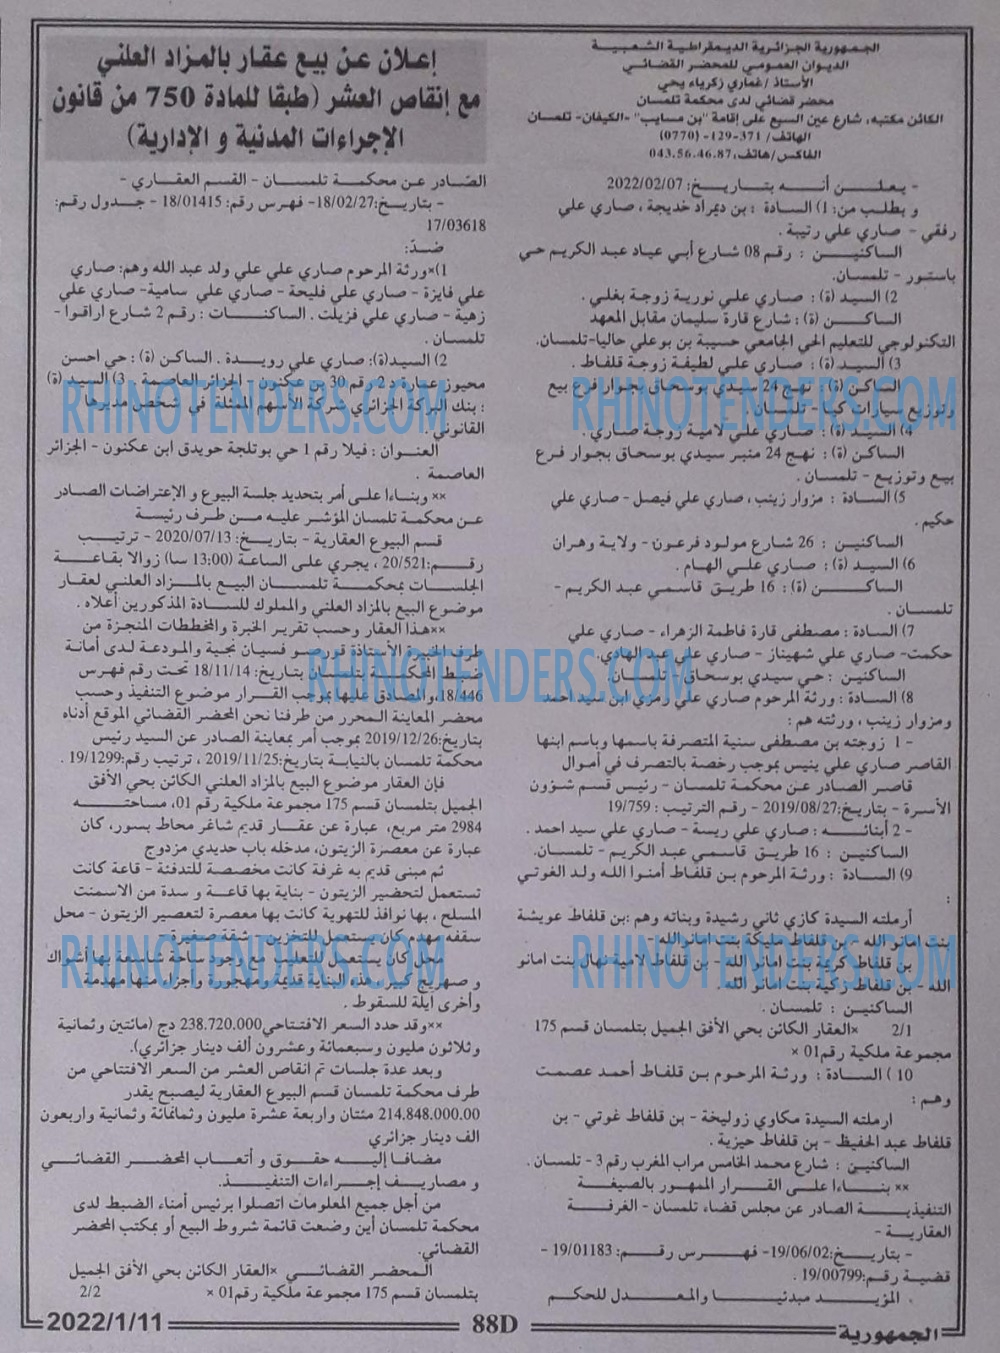 الجمهورية الجزائرية الديمقراطية الشعبية
الديوان العمومي للمحضر القضائي
الأستاذ / غماري زكرياء يحي
محضر قضائي لدى محكمة تلمسان
الكائن مكتبه، شارع عين السبع على إقامة "بن مسايب" -الكيفان- تلمسان
الهاتف/ 371-129- (0770)
الفاكس/هاتف، 043.56.46.87
- يعلن أنه بتاريخ: 2022/02/07
و بطلب من: 1) السادة : بن ديمراد خديجة ، صاري علي
رفقي - صاري علي رتيبة .
الساكنين : رقم 08 شارع أبي عياد عبد الكريم حي
باستور - تلمسان.
2) السيد (ة) : صاري علي نورية زوجة بغلي .
الساكن (ة) : شارع قارة سليمان مقابل المعهد
التكنولوجي للتعليم الحي الجامعي حسيبة بن بوعلي حاليا-تلمسان.
3) السيد (ة) : صاري علي لطيفة زوجة قلفاط .
الساكن (ة) : نهج 24 سيدي بوسحاق بجوار فرع بيع
وتوزيع سيارات كيا - تلمسان .
4) السيد (ة) : صاري علي لامية زوجة صاري .
الساكن (ة) : نهج 24 منبر سيدي بوسحاق بجوار فرع
بيع وتوزيع - تلمسان .
5) السادة : مزوار زينب ، صاري علي فيصل - صاري علي
حكيم .
الساكنين : 26 شارع مولود فرعون - ولاية وهران
6) السيد (ة) : صاري علي الهام .
الساكن (ة) : 16 طريق قاسمي عبد الكريم -
تلمسان .
7) السادة : مصطفى قارة فاطمة الزهراء - صاري علي
حكمت- صاري علي شهيناز - صاري علي عبد الهادي.
الساكنين : حي سيدي بوسحاق - تلمسان.
8) السادة : ورثة المرحوم صاري علي رمزي ابن سيد احمد
ومزوار زينب ، ورثته هم :
- 1 زوجته بن مصطفى سنية المتصرفة باسمها وباسم ابنها
القاصر صاري علي ينيس بموجب رخصة بالتصرف في أموال
قاصر الصادر عن محكمة تلمسان - رئيس قسم شؤون
الأسرة - بتاريخ: 2019/08/27 - رقم الترتيب : 19/759
- 2 أبنائه : صاري علي ريسة - صاري علي سيد احمد .
الساكنين : 16 طريق قاسمي عبد الكريم - تلمسان.
9) السادة : ورثة المرحوم بن قلفاط أمنوا الله ولد الغوتي
:
أرملته السيدة كازي ثاني رشيدة وبناته وهم :بن قلفاط عويشة
بنت امانو الله - بن قلفاط مليكة بنت امانو الله -
بن قلفاط كرية بنت امانو الله - بن قلفاط لامية نهال بنت امانو
الله - بن قلفاط زكية بنت امانو الله.
الساكنين : تلمسان .
2/1 ×العقار الكائن بحي الأفق الجميل بتلمسان قسم 175
مجموعة ملكية رقم 01 ×
10 ) السادة : ورثة المرحوم بن قلفاط أحمد عصمت
وهم :
ارملته السيدة مكاوي زوليخة - بن قلفاط غوتي - بن
قلفاط عبد الحفيظ - بن قلفاط حيزية .
الساكنين : شارع محمد الخامس مراب المغرب رقم 3 - تلمسان .
×× بناءا على القرار الممهور بالصيغة
التنفيذية الصادر عن مجلس قضاء تلمسان - الغرفة
العقارية -
- بتاريخ: 19/06/02- فهرس رقم: 19/01183 -
قضية رقم: 19/00799 .
. المؤيد مبدئيا والمعدل للحكم
إعلان عن بيع عقار بالمزاد العلني
مع إنقاص العشر (طبقا للمادة 750 من قانون
الإجراءات المدنية و الإدارية)
الصّادر عن محكمة تلمسان - القسم العقاري -
- بتاريخ: 18/02/27- فهرس رقم: 18/01415 - جدول رقم:
17/03618
ضدّ:
1)×ورثة المرحوم صاري علي علي ولد عبد الله وهم: صاري
علي فايزة - صاري علي فليحة - صاري علي سامية- صاري علي
زهية - صاري علي فزيلت . الساكنات : رقم 2 شارع اراقوا -
تلمسان .
2) السيد(ة): صاري علي رويدة . الساكن (ة) : حي احسن
محيوز عمارة د 2 رقم 30 بن عكنون - الجزائر العاصمة . 3) السيد (ة)
: بنك البركة الجزائري شركة الأسهم الممثلة في شخص مديرها
القانوني .
العنوان : فيلا رقم 1 حي بوتلجة حويدق ابن عكنون - الجزائر
العاصمة .
×× وبناءا على أمر بتحديد جلسة البيوع و الإعتراضات الصادر
عن محكمة تلمسان المؤشر عليه من طرف رئيسة
قسم البيوع العقارية - بتاريخ: 2020/07/13 - ترتيب
رقم: 20/521 ، يجري على الساعة (13:00 سا) زوالا بقاعة
الجلسات بمحكمة تلمسان البيع بالمزاد العلني لعقار
موضوع البيع بالمزاد العلني والمملوك للسادة المذكورين أعلاه .
××هذا العقار وحسب تقرير الخبرة والمخططات المنجزة من
طرف الخبيرة الأستاذة قورصو فسيان نجية والمودعة لدى أمانة
ضبط المحكمة بتلمسان بتاريخ: 18/11/14 تحت رقم فهرس
18/446، والمصادق عليها بموجب القرار موضوع التنفيذ وحسب
محضر المعاينة المحرر من طرفنا نحن المحضر القضائي الموقع أدناه
بتاريخ: 2019/12/26 بموجب أمر بمعاينة الصادر عن السيد رئيس
محكمة تلمسان بالنيابة بتاريخ: 2019/11/25 ، ترتيب رقم: 19/1299 .
فإن العقار موضوع البيع بالمزاد العلني الكائن بحي الأفق
الجميل بتلمسان قسم 175 مجموعة ملكية رقم 01، مساحته
2984 متر مربع، عبارة عن عقار قديم شاغر محاط بسور، كان
عبارة عن معصرة الزيتون، مدخله باب حديدي مزدوج
ثم مبنى قديم به غرفة كانت مخصصة للتدفئة - قاعة كانت
تستعمل لتحضير الزيتون - بناية بها قاعة و سدة من الاسمنت
المسلح ، بها نوافذ للتهوية كانت بها معصرة لتعصير الزيتون - محل
سقفه مهدم كان يستعمل للتخزين - شقة صغيرة -
محل كان يستعمل للتعليب مع وجود ساحة شاسعة بها أشواك
و صهريج كبير، هذه البناية قديمة ومهجورة وأجزاء منها مهدمة
وأخرى آيلة للسقوط .
××وقد حدد السعر الافتتاحي 238.720.000 دج (مائتين وثمانية
وثلاثون مليون وسبعمائة وعشرون ألف دينار جزائري).
وبعد عدة جلسات تم انقاص العشر من السعر الافتتاحي من
طرف محكمة تلمسان قسم البيوع العقارية ليصبح يقدر
214.848.000.00 مئتان واربعة عشرة مليون وثمانمائة وثمانية واربعون
الف دينار جزائري
مضافا إليه حقوق و أتعاب المحضر القضائي
و مصاريف إجراءات التنفيذ.
من أجل جميع المعلومات اتصلوا برئيس أمناء الضبط لدى
محكمة تلمسان أين وضعت قائمة شروط البيع أو بمكتب المحضر
القضائي.
المحضر القضائي ×العقار الكائن بحي الأفق الجميل
بتلمسان قسم 175 مجموعة ملكية رقم 01 × 2/2
الجمهورية 88D 2022/1/11
RHINOTENDERS.COM
RHINOTENDERS.COM
RHINOTENDERS.COM
RHINOTENDERS.COM
RHINOTENDERS.COM